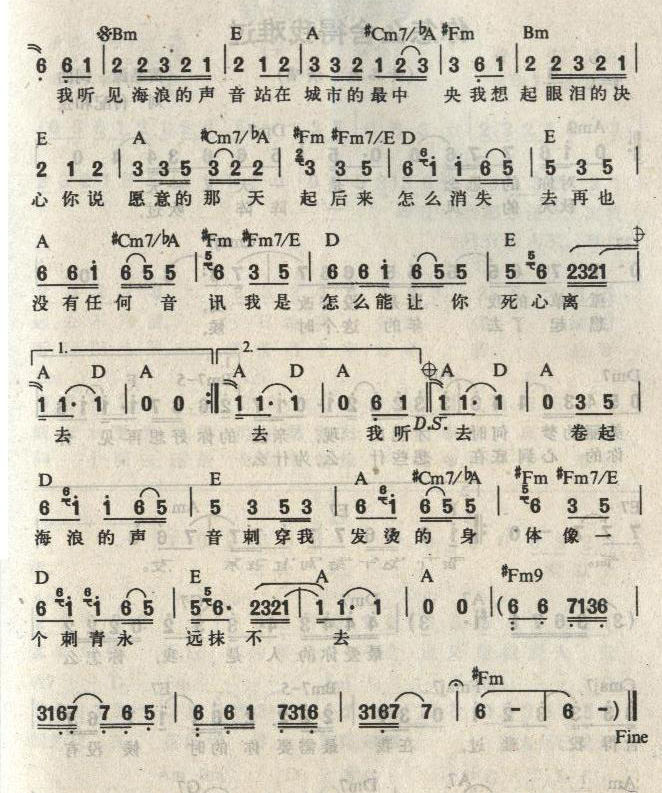 𝄋Bm E A #Cm7/♭A #Fm Bm
6 6 1 | 2 2 3 2 1 | 2 1 2 | 3 3 2 1 2 3 | 3 6 1 | 2 2 3 2 1 |
我听 见海浪的声 音站在 城市的最中 央我想 起眼泪的决
E A #Cm7/♭A #Fm #Fm7/E D E
2 1 2 | 3 3 5 3 2 2 | 3 3 5 | 6 i i 6 5 | 5 3 5 |
心你说 愿意的那天 起后来 怎么消失 去再也
A #Cm7/♭A #Fm #Fm7/E D E
6 6 i 6 5 5 | 6 3 5 | 6 6 i 6 5 5 | 5 6 2321 |
没有任何音 讯我是 怎么能让你 死心离
1. 2.
A D A A D A A D A
1 1· 1 | 0 0 :‖ 1 1· 1 | 0 6 1 ‖ 1 1· 1 | 0 3 5 |
去 去 我听 D.S. 去 卷起
D E A #Cm7/♭A #Fm #Fm7/E
6 i i 6 5 | 5 3 5 3 | 6 i 6 5 5 | 6 3 5 |
海浪的声 音刺穿我 发烫的身 体像一
D E A A #Fm9
6 i i 6 5 | 5 6· 2321 | 1 1· 1 | 0 0 | (6 6 7136 |
个刺青永 远抹不 去
#Fm
3167 7 6 5 | 6 6 1 7316 | 3167 7 | 6 | 6 -) ‖
Fine